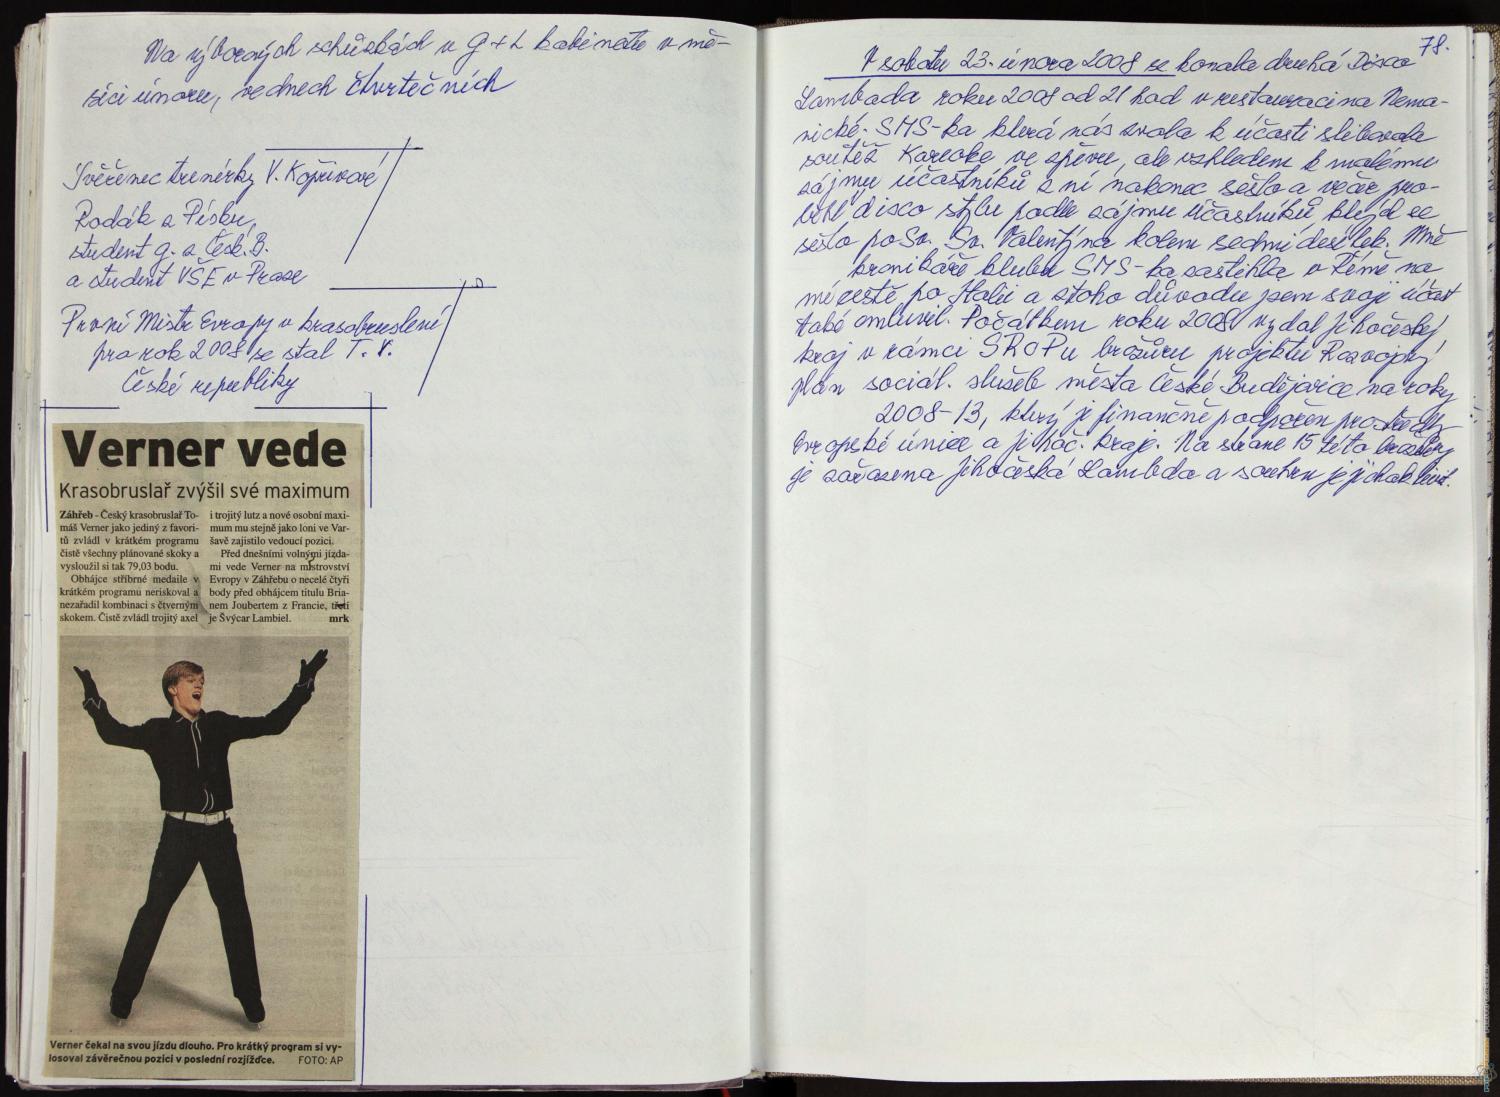 Na výborových schůzkách v G+L kabinetu v mě-
síci únoru, ve dnech čtvrtečních
Svěřenec trenérky V. Kopřivové
Rodák z Písku,
student g. z Česk. B.
a student VŠE v Praze
První Mistr Evropy v krasobruslení
pro rok 2008 se stal T. V.
České republiky
Verner vede
Krasobruslař zvýšil své maximum
Záhřeb - Český krasobruslař To-
máš Verner jako jediný z favori-
tů zvládl v krátkém programu
čistě všechny plánované skoky a
vysloužil si tak 79,03 bodu.
Obhájce stříbrné medaile v
krátkém programu neriskoval a
nezařadil kombinaci s čtverným
skokem. Čistě zvládl trojitý axel
i trojitý lutz a nové osobní maxi-
mum mu stejně jako loni ve Var-
šavě zajistilo vedoucí pozici.
Před dnešními volnými jízda-
mi vede Verner na mistrovství
Evropy v Záhřebu o necelé čtyři
body před obhájcem titulu Bria-
nem Joubertem z Francie, třetí
je Švýcar Lambiel. mrk
Verner čekal na svou jízdu dlouho. Pro krátký program si vy-
losoval závěrečnou pozici v poslední rozjížďce. FOTO: AP
78.
V sobotu 23. února 2008 se konala druhá Disco
Lambada roku 2008 od 21 hod v restauraci na Nema-
nické. SMS-ka která nás zvala k účasti slibovala
soutěž Kareoke ve zpěvu, ale vzhledem k malému
zájmu účastníků z ní nakonec sešlo a večer pro-
běhl disco stylu podle zájmu účastníků, kterých se
sešlo po Sv. Sv. Valentýna kolem sedmi desítek. Mně
kronikáře klubu SMS-ka zastihla v Římě na
mé cestě po Itálii a z toho důvodu jsem svoji účast
také omluvil. Počátkem roku 2008 vydal Jihočeský
kraj v rámci SROPu brožůru projektu Rozvojový
plán sociál. služeb města České Budějovice na roky
2008-13, který je finančně podpořen prostředky
Evropské únice a jihoč. kraje. Na straně 15 této brožůry
je zařazena Jihočeská Lambda a souhrn jejich aktivit.